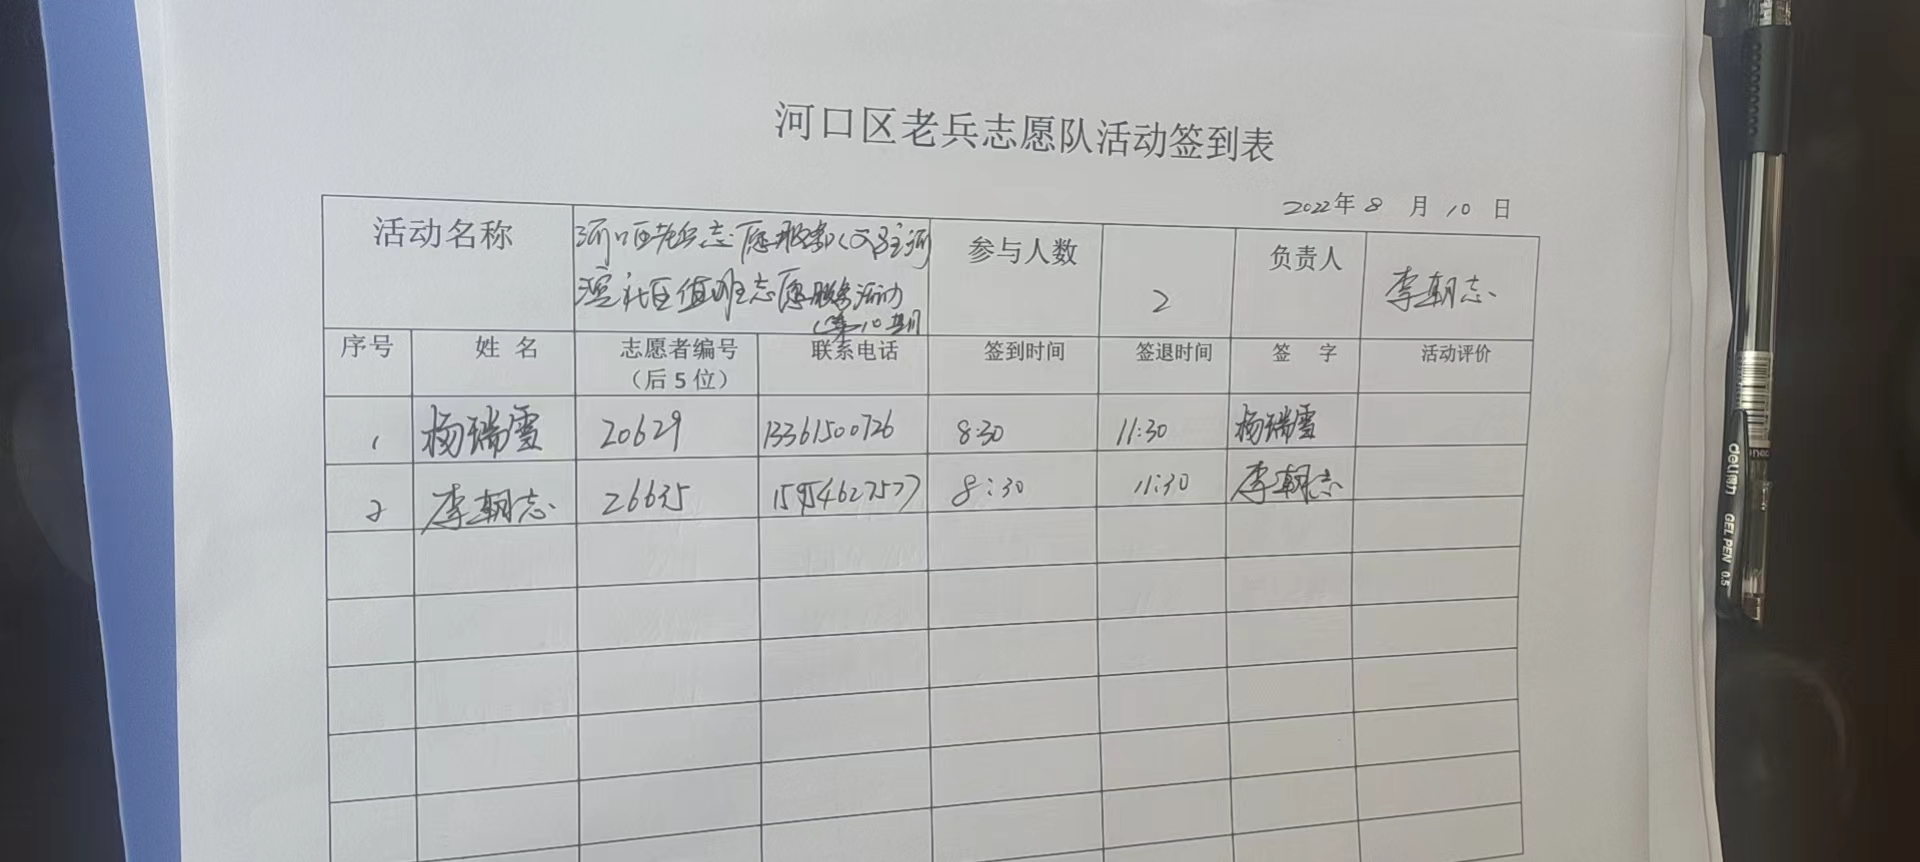 河口区老兵志愿队活动签到表
2022年 8 月 10 日
活动名称
河口区老兵志愿服务队
河
社区值班志愿服务活动
第10期
参与人数
2
负责人
李朝志
序号 姓名 志愿者编号 联系电话 签到时间 签退时间 签字 活动评价
（后5位）
1 杨瑞雪 20629 13361500726 8:30 11:30 杨瑞雪
2 李朝志 26635 15954627577 8:30 11:30 李朝志
deli得力
GEL PEN 0.5